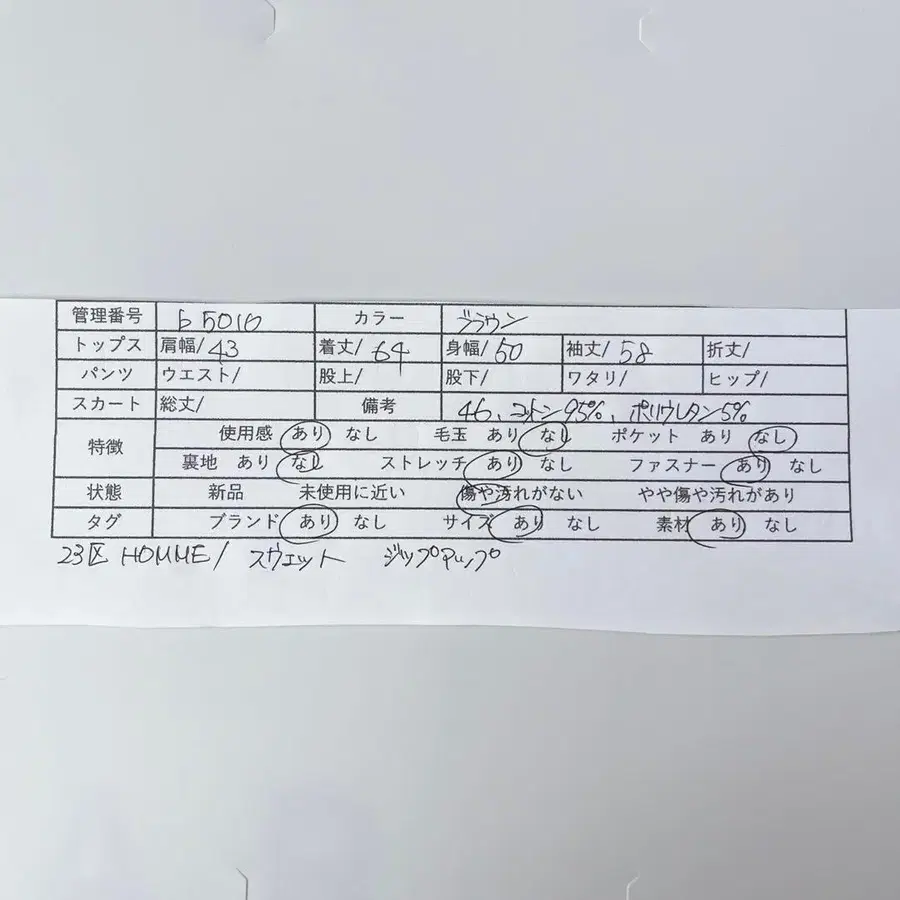 管理番号 b5010 カラー ブラウン
トップス 肩幅/43 着丈/64 身幅/50 袖丈/58 折丈/
パンツ ウエスト/ 股上/ 股下/ ワタリ/ ヒップ/
スカート 総丈/ 備考 46、コットン95%、ポリウレタン5%
特徴 使用感 あり なし 毛玉 あり なし ポケット あり なし
裏地 あり なし ストレッチ あり なし ファスナー あり なし
状態 新品 未使用に近い 傷や汚れがない やや傷や汚れがあり
タグ ブランド あり なし サイズ あり なし 素材 あり なし
23区 HOMME/ スウェット ジップアップ